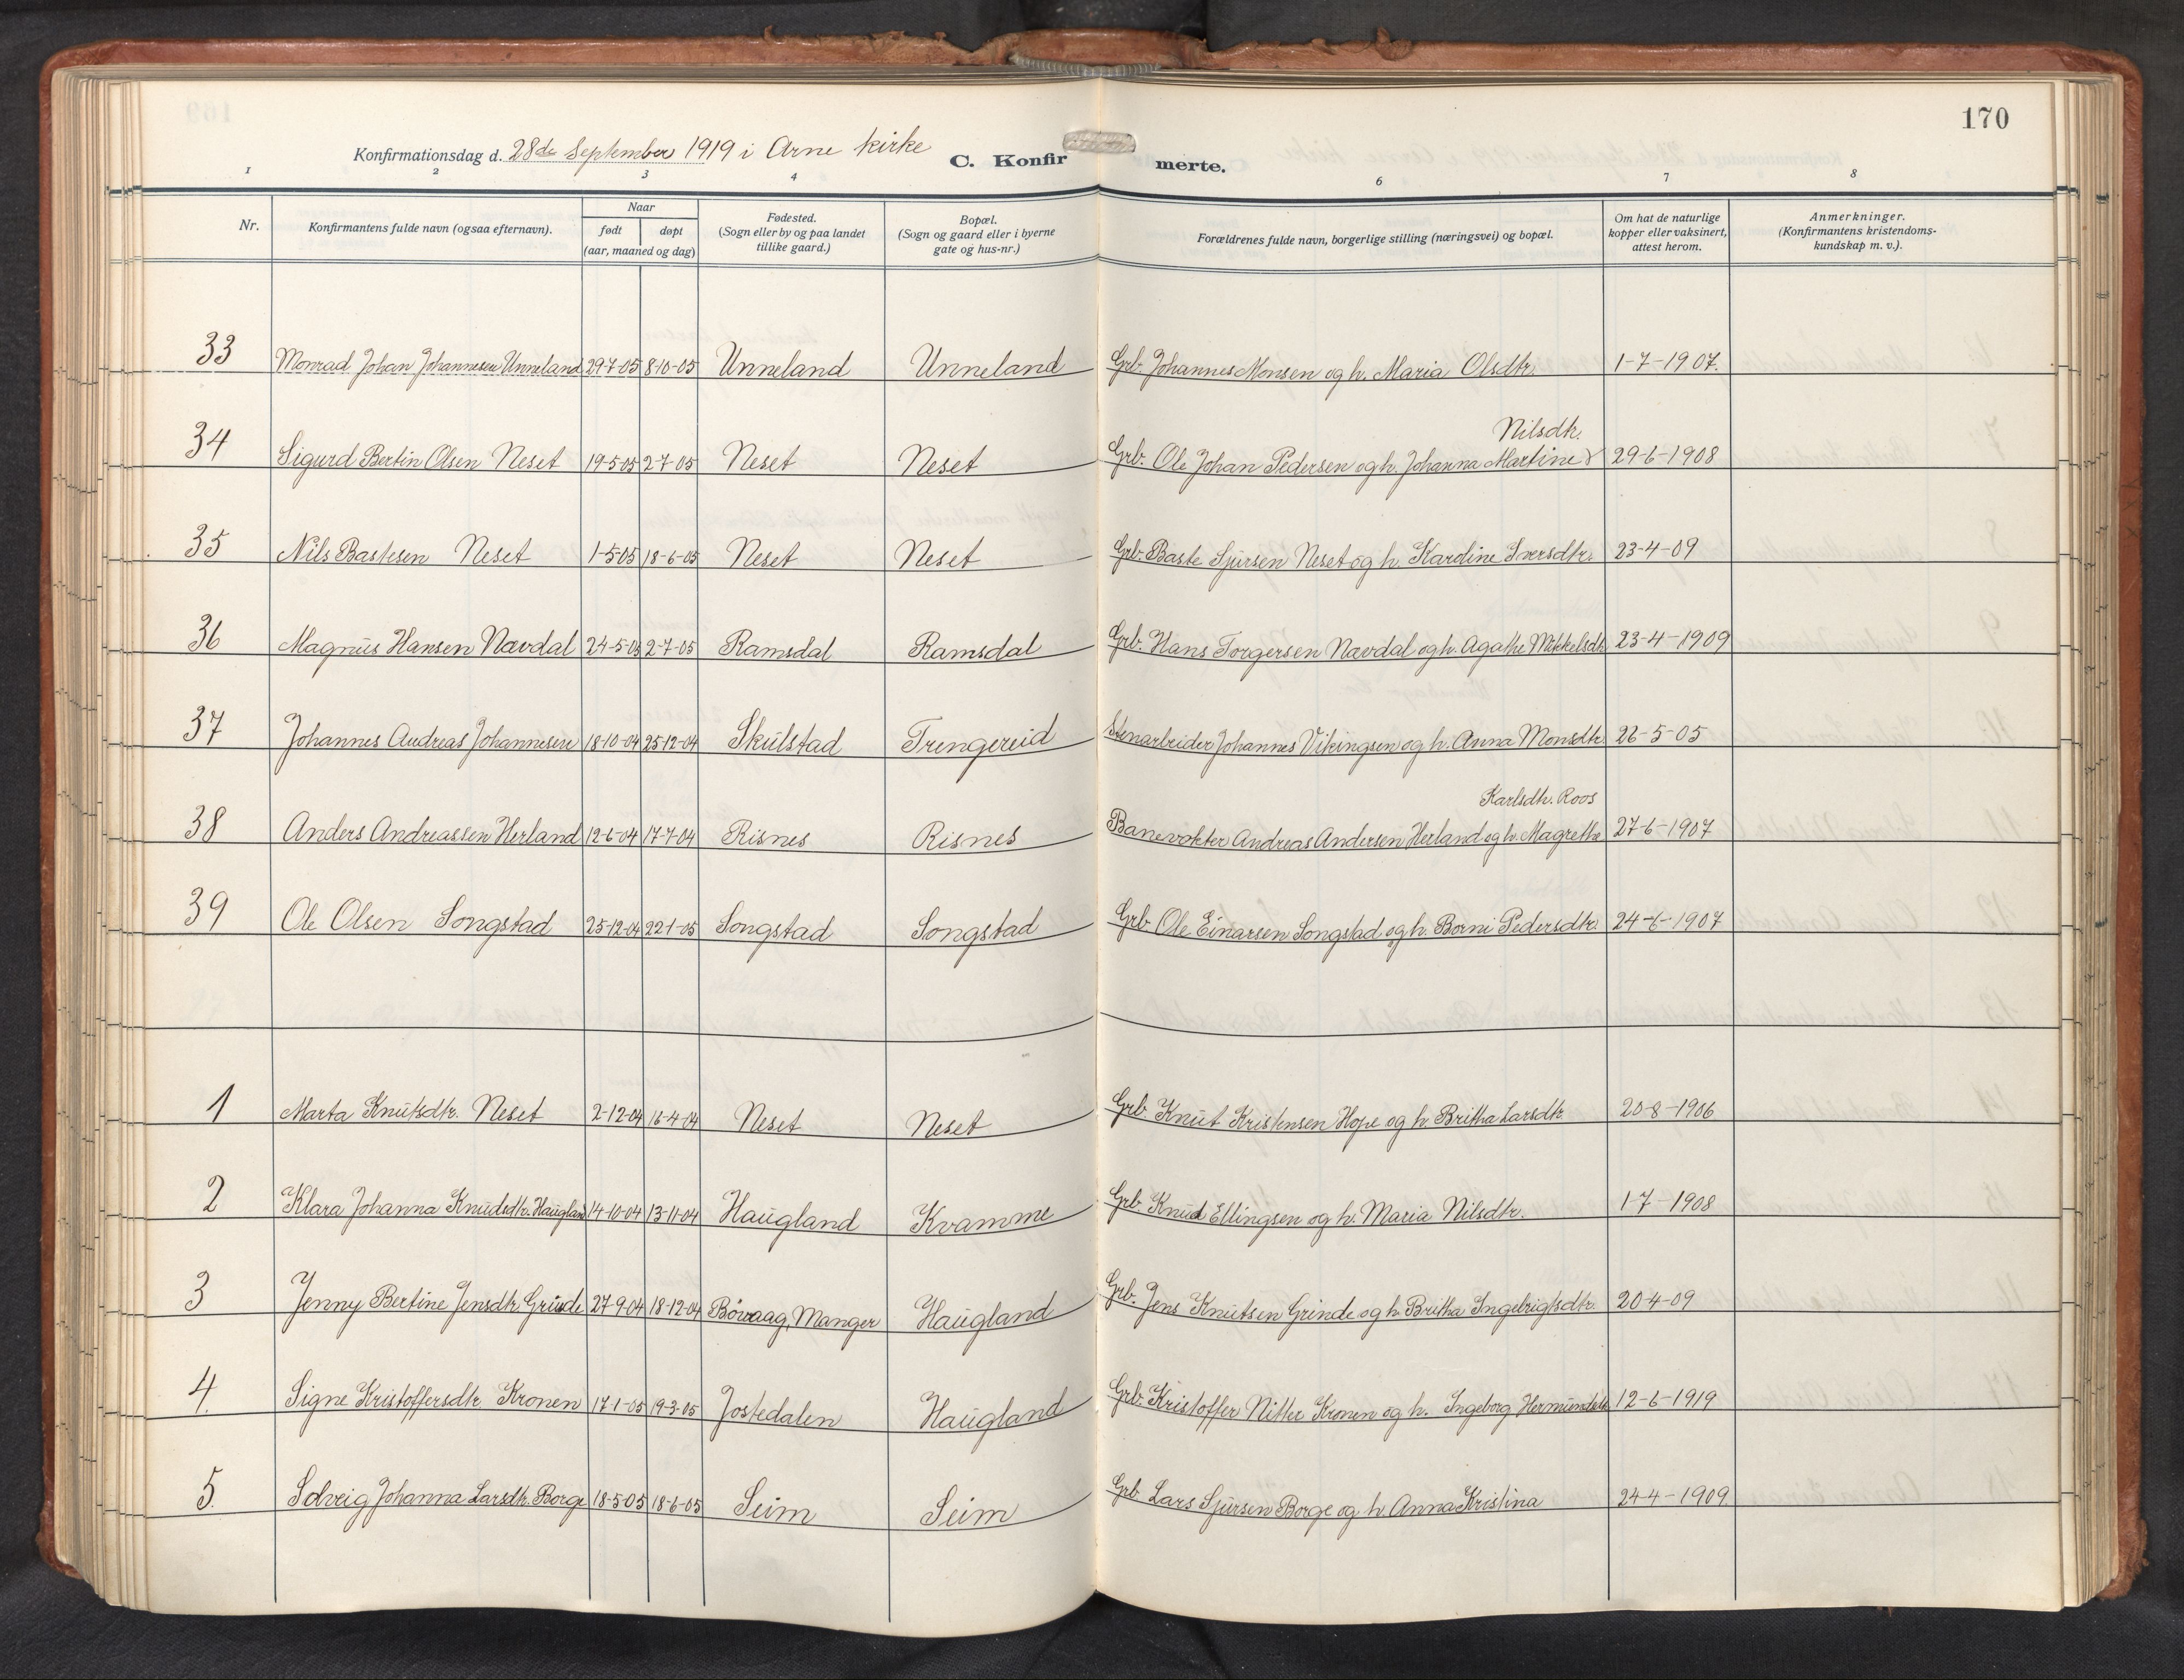 170
Konfirmationsdag d. 28de September 1919 i Arne kirke C. Konfirmerte.
1 2 3 4 6 7 8
Nr. Konfirmantens fulde navn (ogsaa efternavn). Naar født døpt (aar, maaned og dag) Fødested. (Sogn eller by og paa landet tillike gaard.) Bopæl. (Sogn og gaard eller i byerne gate og hus-nr.) Forældrenes fulde navn, borgerlige stilling (næringsvei) og bopæl. Om hat de naturlige kopper eller vaksinert, attest herom. Anmerkninger. (Konfirmantens kristendoms-kundskap m. v.).
33 Monrad Johan Johannesen Unneland 29-7-05 8-10-05 Unneland Unneland Grb. Johannes Monsen og h. Maria Olsdtr. 1-7-1907.
34 Sigurd Bertin Olsen Neset 19-5-05 2-7-05 Neset Neset Grb. Ole Johan Pedersen og h. Johanna Martine Nilsdtr. 29-6-1908
35 Nils Bastesen Neset 1-5-05 18-6-05 Neset Neset Grb. Baste Sjursen Neset og h. Kardine Iversdtr. 23-4-09
36 Magnus Hansen Nævdal 24-5-05 2-7-05 Ramsdal Ramsdal Grb. Hans Torgersen Nævdal og h. Agathe Mikkelsdtr. 23-4-1909
37 Johannes Andreas Johannesen 18-10-04 25-12-04 Skulstad Trengereid Stenarbeider Johannes Vikingsen og h. Anna Monsdtr. 22-5-05
38 Anders Andreassen Herland 12-6-04 17-7-04 Risnes Risnes Banevokter Andreas Andersen Herland og h. Magrethe Karlsdtr. Roos 27-6-1907
39 Ole Olsen Songstad 25-12-04 22-1-05 Songstad Songstad Grb. Ole Einarsen Songstad og h. Borni Pedersdtr. 24-6-1907
1 Marta Knutsdtr. Neset 2-12-04 16-4-04 Neset Neset Grb. Knut Kristensen Hope og h. Britha Larsdtr. 20-8-1906
2 Klara Johanna Knudsdtr. Haugland 14-10-04 13-11-04 Haugland Kvamme Grb. Knud Ellingsen og h. Maria Nilsdtr. 1-7-1908
3 Jenny Bertine Jensdtr. Grinde 27-9-04 18-12-04 Bövaag, Manger Haugland Grb. Jens Knutsen Grinde og h. Britha Ingebrigtsdtr. 20-4-09
4. Signe Kristoffersdtr. Kronen 17-1-05 19-3-05 Jostedalen Haugland Grb. Kristoffer Nitter Kronen og h. Ingeborg Hermundsdtr. 12-6-1919
5. Solveig Johanna Larsdtr. Borge 18-5-05 18-6-05 Seim Seim Grb. Lars Sjursen Borge og h. Anna Kristina 24-4-1909